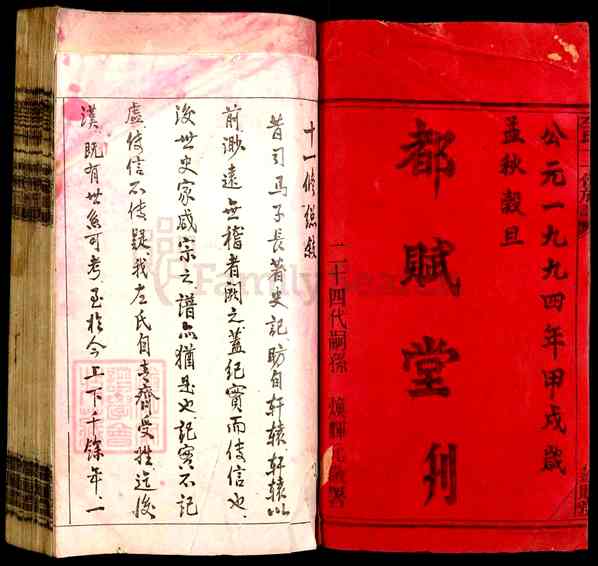 公元一九九四年甲戌歲
孟秋穀旦
都賦堂刊
二十四代嗣孫
十一修總敘
昔司馬子長著史記昉自軒轅軒轅以
前渺遠無稽者闕之蓋紀實而傳信也
後世史家咸宗之譜亦猶是也記實不記
虛傳信不傳疑我左氏自齊受姓迄後
漢既有世系可考至於今上下千餘年一
FamilySearch